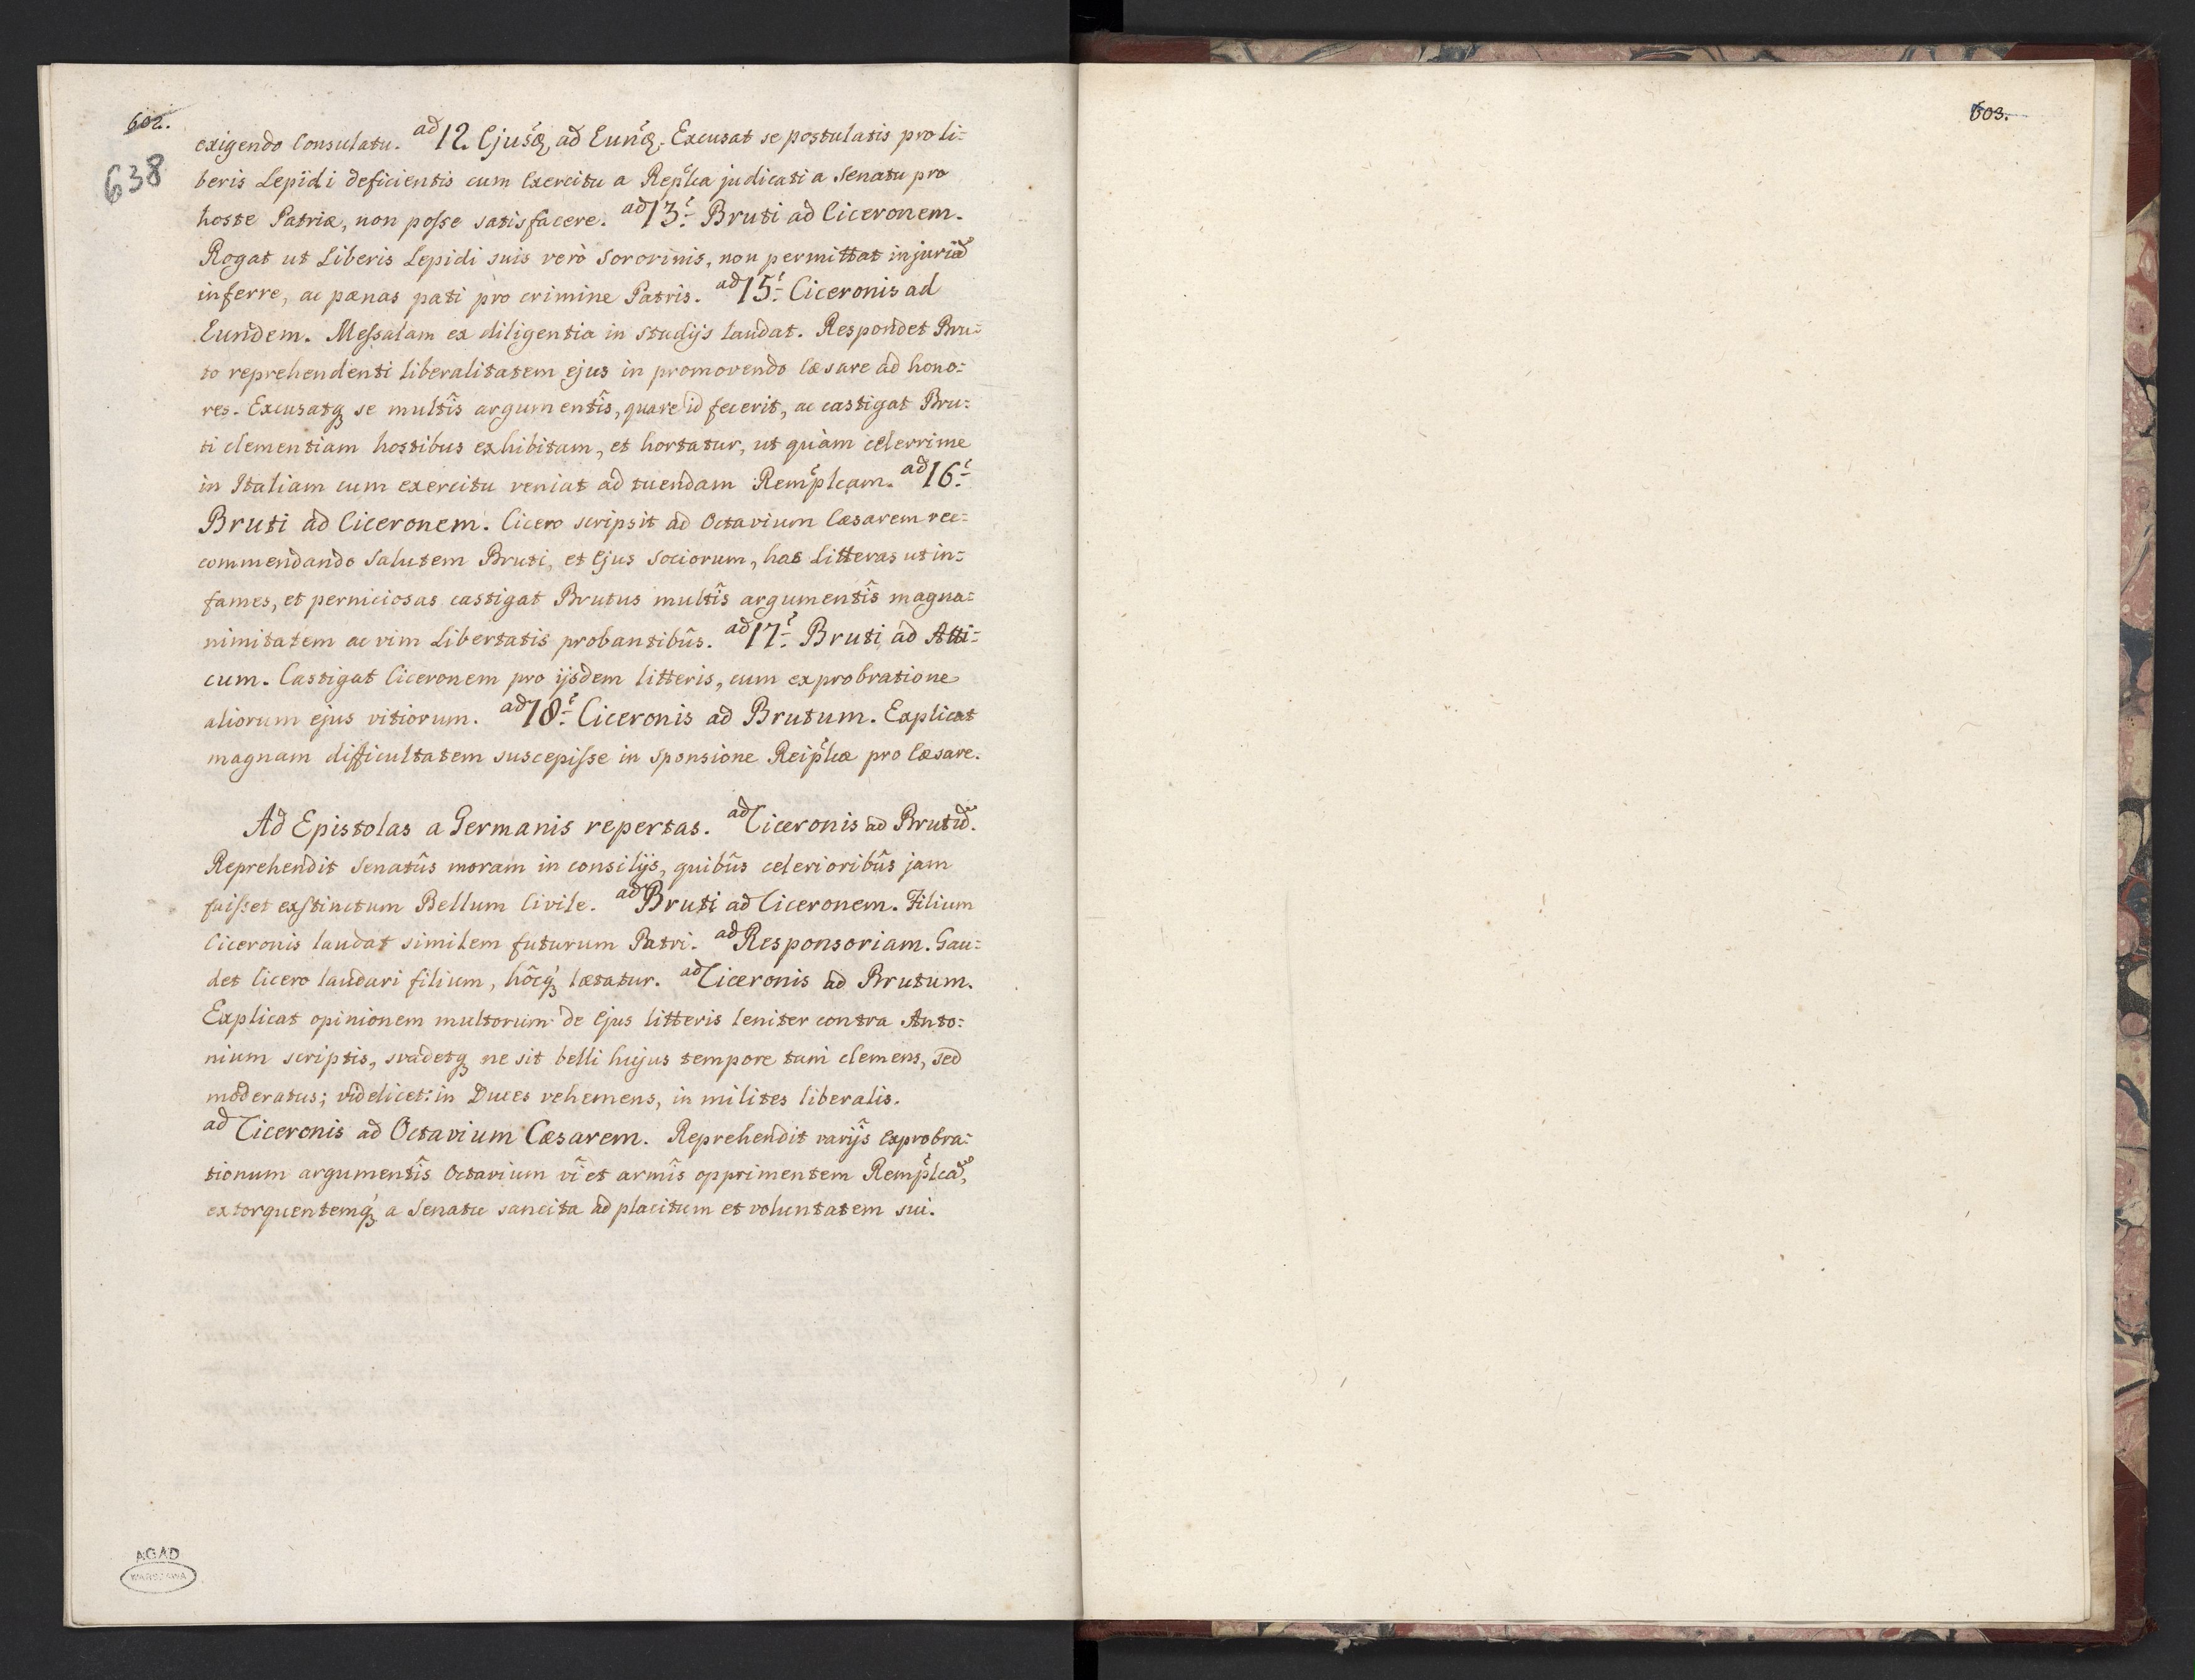 602.
638
exigendo Consulatu. ad 12. Ejusdē ad Eundē. Excusat se postulatis pro li=
beris Lepidi deficientis cum Exercitu a Repl̃ca judicati a Senatu pro
hoste Patriæ, non posse satisfacere. ad 13. Bruti ad Ciceronem.
Rogat ut Liberis Lepidi suis verò Sororinis, non permittat injuriã
inferre, ac pænas pati pro crimine Patris. ad 15. Ciceronis ad
Eundem. Messalam ex diligentia in studijs laudat. Respondet Bru=
to reprehendenti liberalitatem ejus in promovendo Cæsare ad hono=
res. Excusatq́ se multîs argumentîs, quare id fecerit, ac castigat Bru=
ti clementiam hostibus exhibitam, et hortatur, ut quàm celerrime
in Italiam cum exercitu veniat ad tuendam Rempl̃cam. ad 16.
Bruti ad Ciceronem. Cicero scripsit ad Octavium Cæsarem rec=
commendando Salutem Bruti, et Ejus Sociorum, has Litteras ut in=
fames, et perniciosas castigat Brutus multîs argumentîs magna=
nimitatem ac vim Libertatis probantibûs. ad 17. Bruti ad Atti=
cum. Castigat Ciceronem pro ijsdem litteris, cum exprobratione
aliorum ejus vitiorum. ad 18. Ciceronis ad Brutum. Explicat
magnam difficultatem suscepisse in sponsione Reipl̃cæ pro Cæsare.
Ad Epistolas a Germanis repertas. ad Ciceronis ad Brutũ.
Reprehendit Senatûs moram in consilijs, quibûs celerioribûs jam
fuisset exstinctum Bellum Civile. ad Bruti ad Ciceronem. Filium
Ciceronis laudat similem futurum Patri. ad Responsoriam. Gau=
det Cicero laudari filium, hôcq́ lætatur. ad Ciceronis ad Brutum.
Explicat opinionem multorum de Ejus litteris leniter contra Anto=
nium scriptis, svadetq́ ne sit belli hujus tempore tam clemens, sed
moderatus; videlicet: in Duces vehemens, in milites liberalis.
ad Ciceronis ad Octavium Cæsarem. Reprehendit varijs exprobra=
tionum argumentîs Octavium vî et armîs opprimentem Rempl̃cã,
extorquentemq́ a Senatu sancita ad placitum et voluntatem sui.
AGAD
WARSZAWA
603.